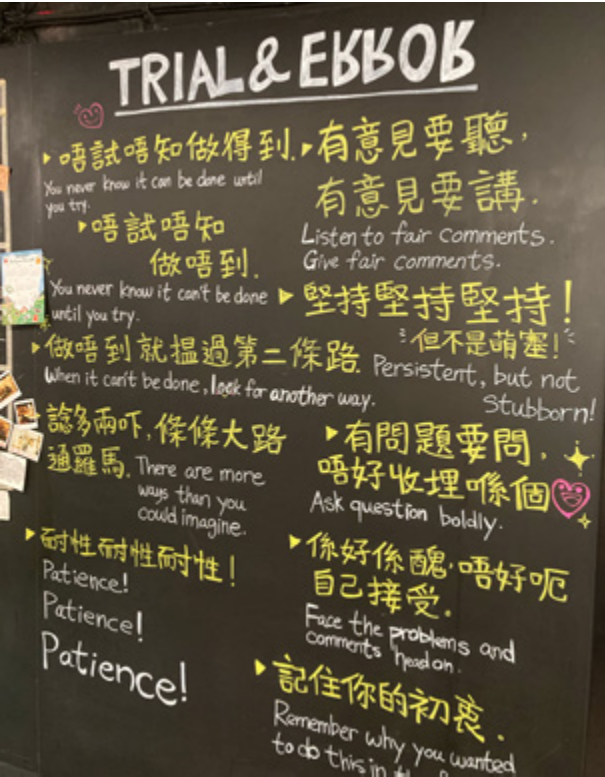 TRIAL & ERROR
唔試唔知做得到.
You never know it can be done until
you try.
唔試唔知
做唔到.
You never know it can't be done
until you try.
做唔到就搵過第二條路.
When it can't be done, look for another way.
諗多兩吓,條條大路
通羅馬. There are more
ways than you
could imagine.
耐性耐性耐性!
Patience!
Patience!
Patience!
有意見要聽,
有意見要講.
Listen to fair comments.
Give fair comments.
堅持堅持堅持!
但不是萌塞!
Persistent, but not
Stubborn!
有問題要問,
唔好收埋喺個
Ask question boldly.
係好係醜,唔好呃
自己接受。
Face the problems and
comments head on.
記住你的初衷.
Remember why you wanted
to do this in